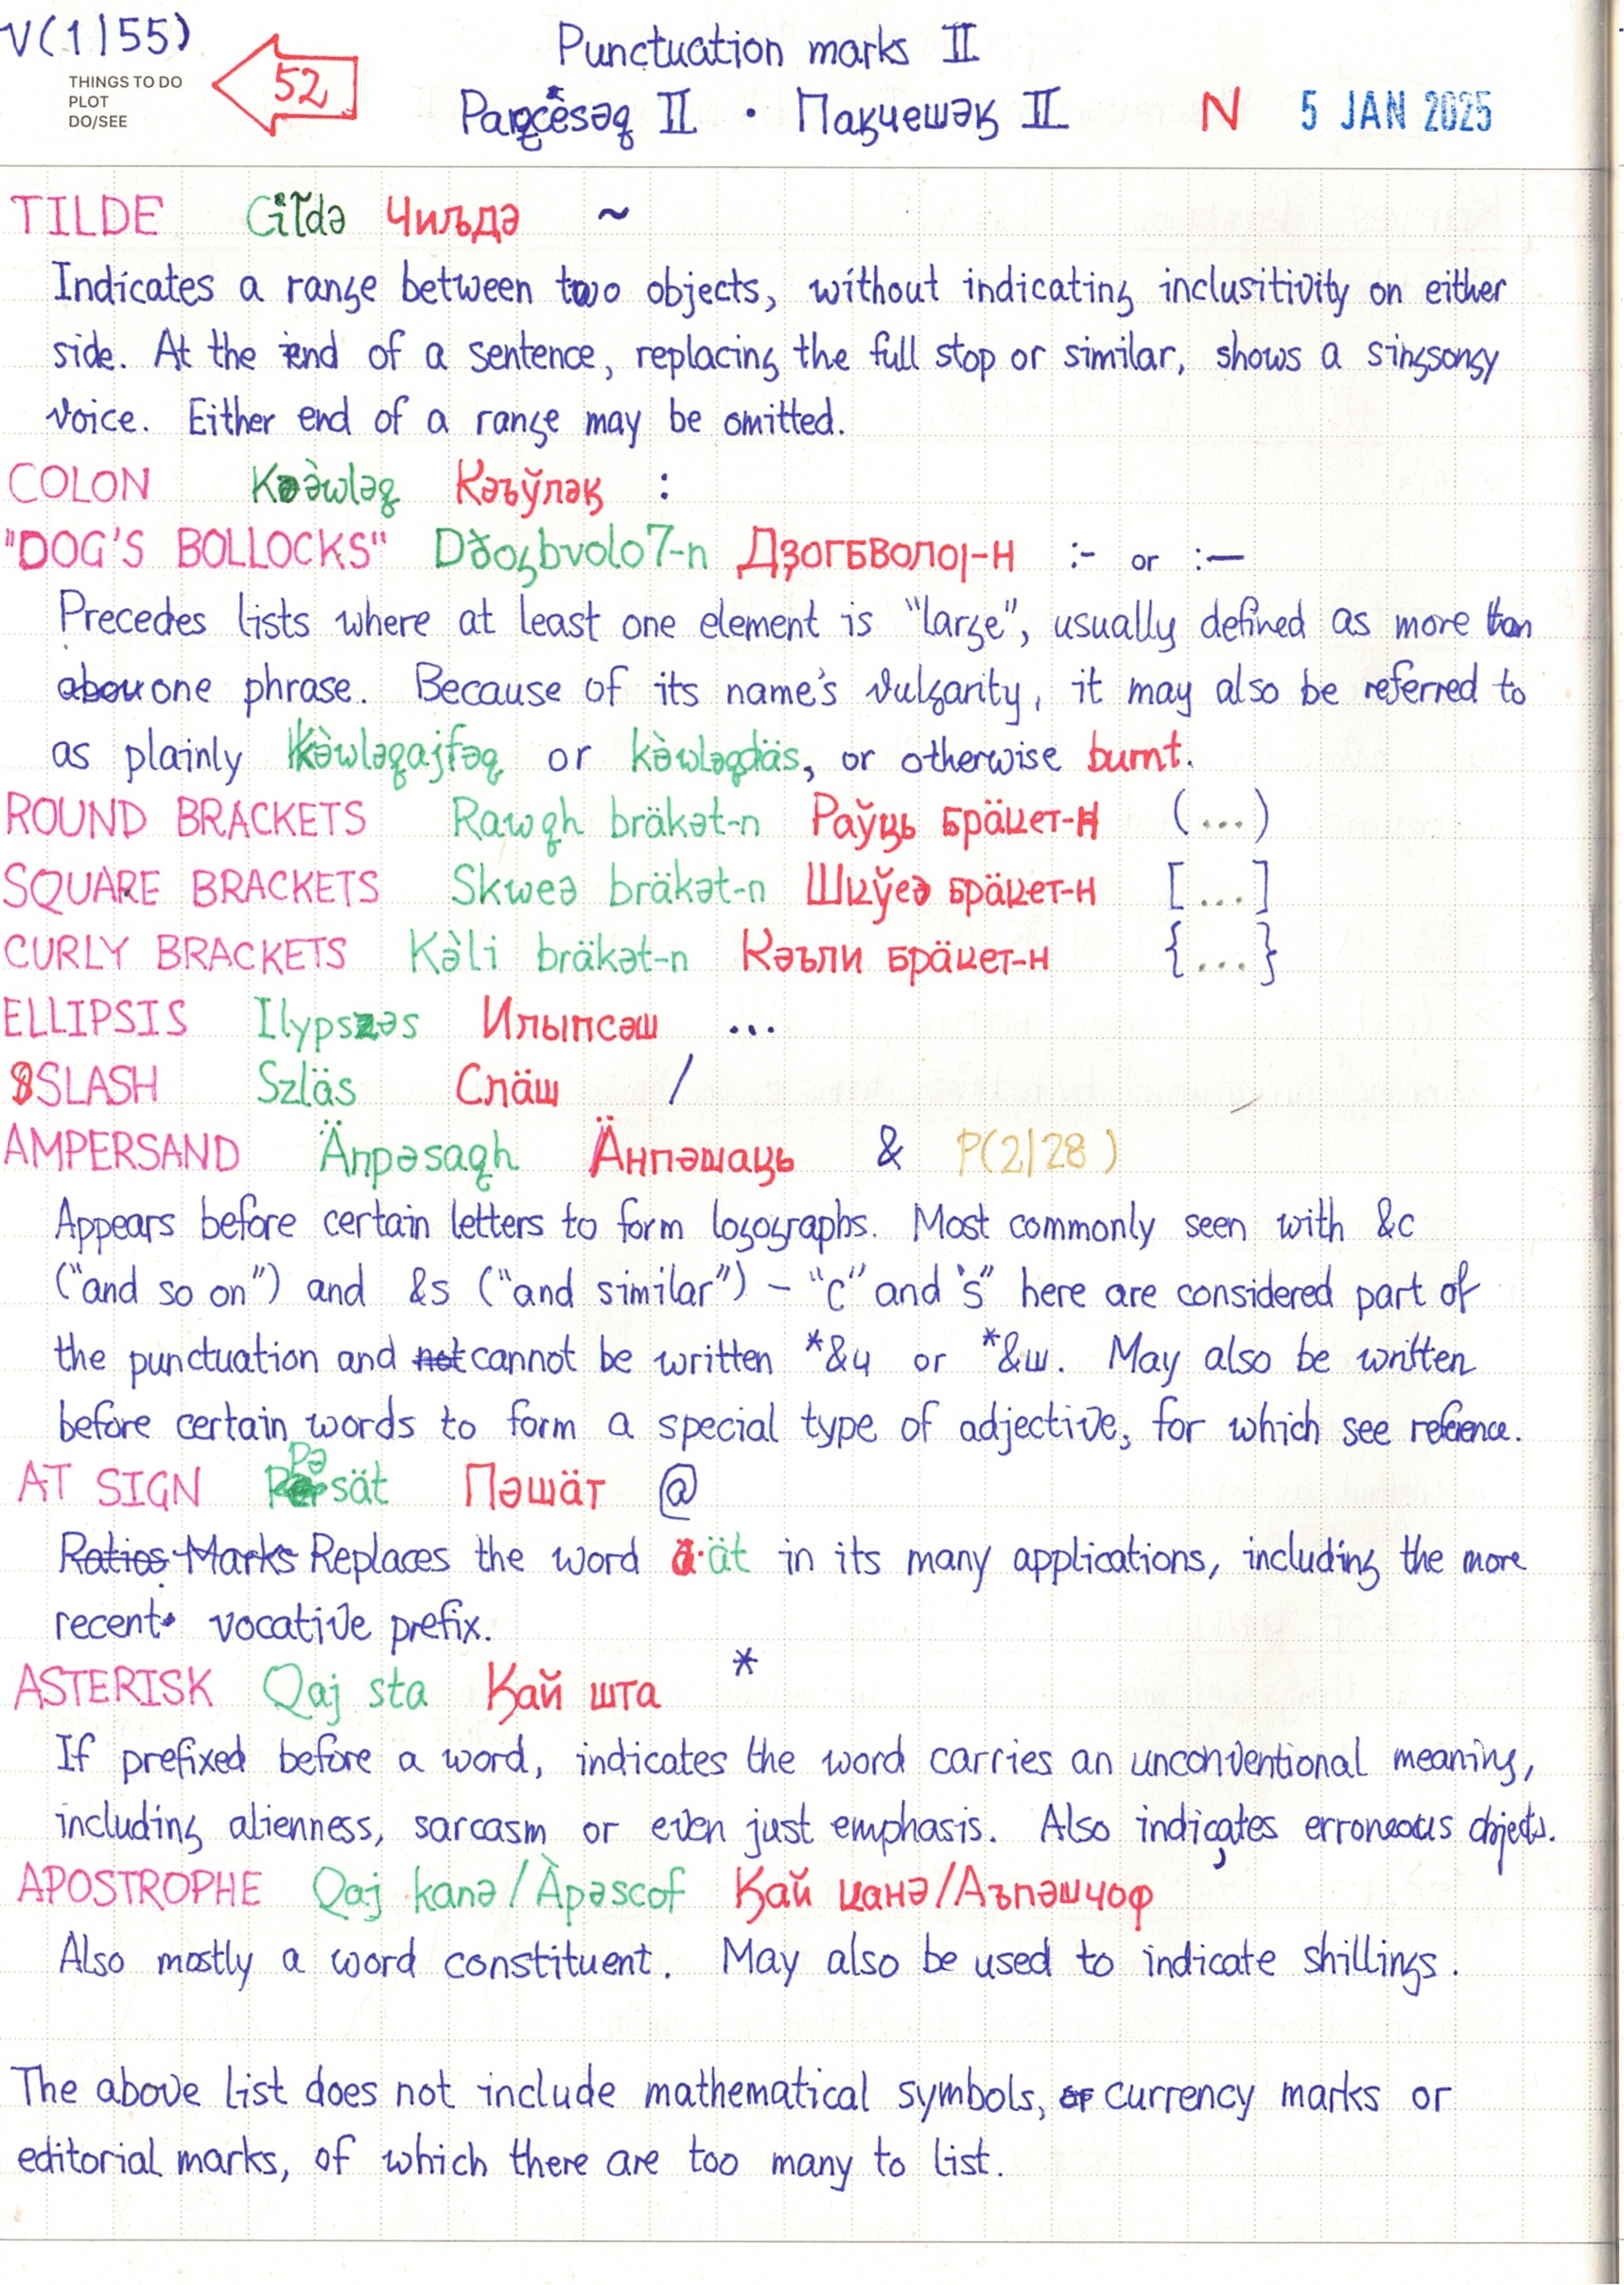 V(1|55)
THINGS TO DO
PLOT
DO/SEE
52
Punctuation marks II
Paqcesəq II · Паӄчешəӄ II N 5 JAN 2025
TILDE Ciľdə Чиљдə ~
Indicates a range between two objects, without indicating inclusitivity on either
side. At the end of a sentence, replacing the full stop or similar, shows a singsongy
voice. Either end of a range may be omitted.
COLON Kə̀wləq Кəъўлəӄ :
"DOG'S BOLLOCKS" Dðogbvolo7-n Дҙогбволој-н :- or :—
Precedes lists where at least one element is "large", usually defined as more than
one phrase. Because of its name's vulgarity, it may also be referred to
as plainly kə̀wləqajfəq or kə̀wləqdäs, or otherwise burnt.
ROUND BRACKETS Rawqh bräkət-n Раўць брäцет-н (...)
SQUARE BRACKETS Skweə bräkət-n Шцўеə брäцет-н [...]
CURLY BRACKETS Kə̀li bräkət-n Кəъли брäцет-н {...}
ELLIPSIS Ilypsəs Илыпсəш ...
SLASH Szläs Слäш /
AMPERSAND Änpəsaqh Äнпəшаць & P(2|28)
Appears before certain letters to form logographs. Most commonly seen with &c
("and so on") and &s ("and similar") – "c" and "s" here are considered part of
the punctuation and not cannot be written *&ч or *&ш. May also be written
before certain words to form a special type of adjective, for which see reference.
AT SIGN Pəsät Пəшäт @
Ratios Marks Replaces the word ät in its many applications, including the more
recent vocative prefix.
ASTERISK Qaj sta Ӄай шта *
If prefixed before a word, indicates the word carries an unconventional meaning,
including alienness, sarcasm or even just emphasis. Also indicates erroneous objects.
APOSTROPHE Qaj kanə/Àpəscof Ӄай цанə/Аъпəшчоф '
Also mostly a word constituent. May also be used to indicate shillings.
The above list does not include mathematical symbols, or currency marks or
editorial marks, of which there are too many to list.